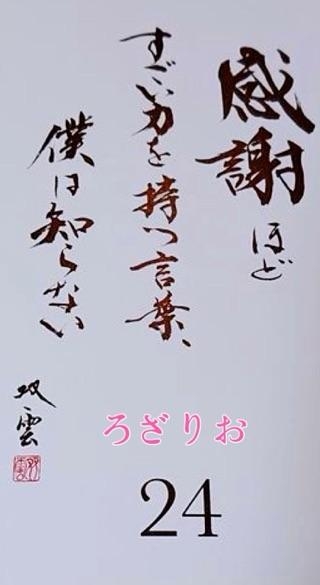 感謝ほど
すごい力を持つ言葉、
僕は知らない
双雲
ろざりお
24